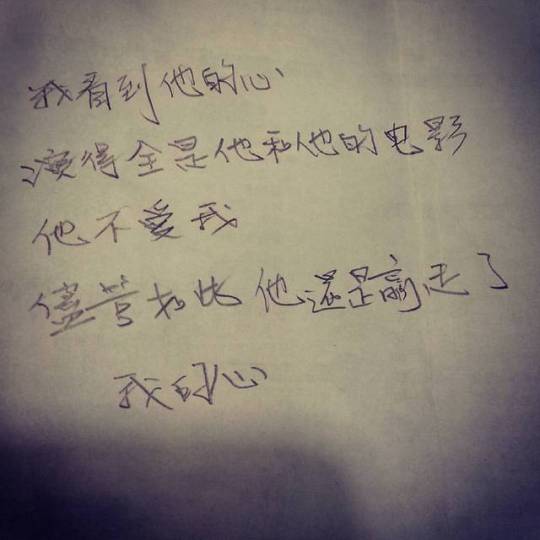 我看到他的心
演得全是他和他的电影
他不愛我
儘管如此 他還是贏走了
我的心